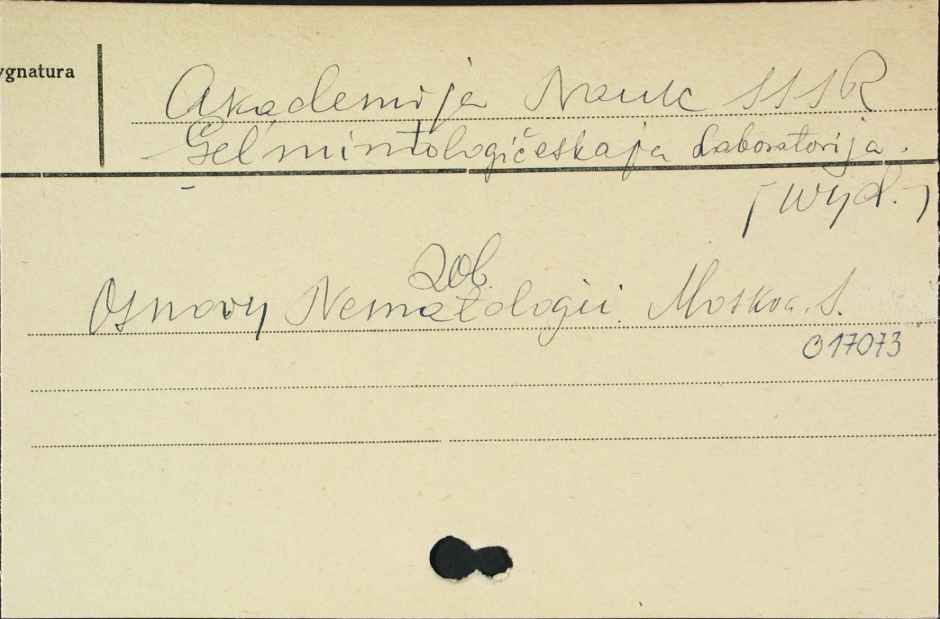 ygnatura
Akademija Nauk SSSR
Gel'mintologičeskaja Laboratorija.
(wyd.)
zob.
Osnovy Nematologii. Moskva. S.
017073